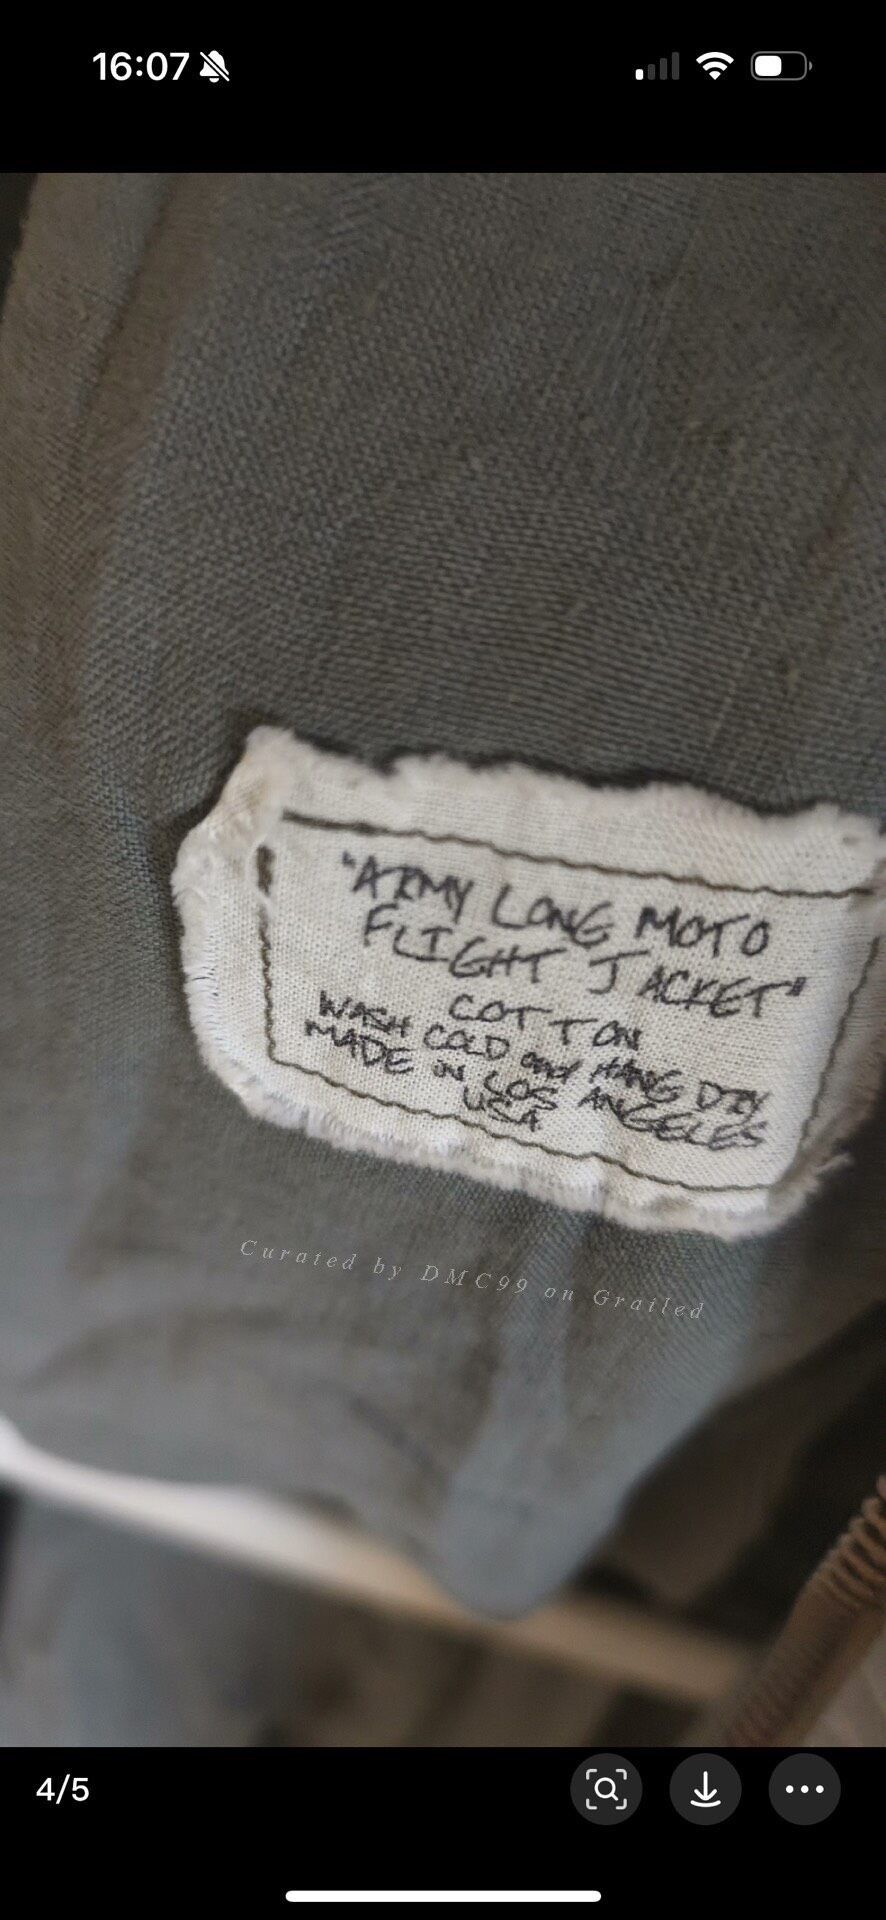 16:07
"ARMY LONG MOTO
FLIGHT JACKET"
COTTON
WASH COLD and HANG DRY
MADE IN LOS ANGELES
USA
Curated by DMC99 on Grailed
4/5